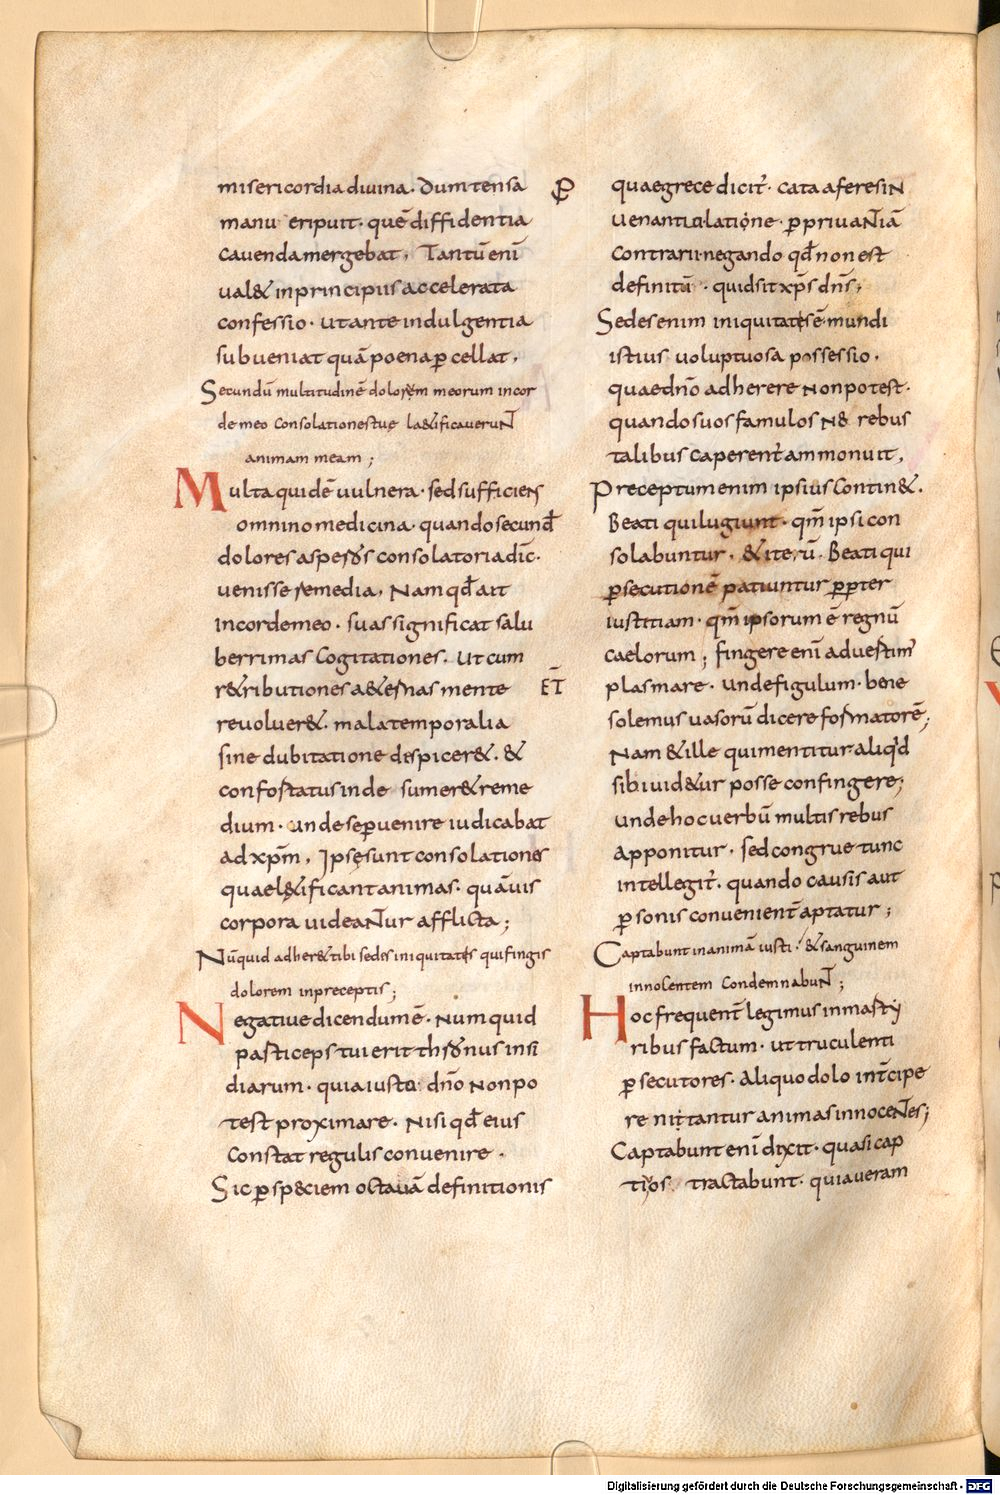 misericordia diuina· dum tensa
manu eripuit· quē diffidentia
cauenda mergebat, Tantū enī
ual& in principiis accelerata
confessio· ut ante indulgentia
subueniat quā poena ꝑcellat,
Secundū multitudinē dolorem meorum in cor
de meo Consolationes tuę la&ificaueruNT
animam meam;
Multa quidē uulnera· sed sufficiens
omnino medicina· quando secund̄
dolores aspesos consolatoria dic̄·
uenisse remedia, Nam qđ ait
in corde meo· suas significat salu
berrimas Cogitationes· Ut cum
r&ributiones a&ernas mente
reuoluer&· mala temporalia
sine dubitatione dispicer&· &
confortatus inde sumer& reme
dium· unde se ꝑuenire iudicabat
ad xp̄m, Ipsę sunt consolationes
quae l&ificant animas· quāuis
corpora uideaNTur afflicta;
Nūquid adher& tibi sedes iniquitatis qui fingis
dolorem in preceptis;
Negatiue dicendum ē· Numquid
particeps tui erit thronus insi
diarum· quia iusto dn̄o Non po
test proximare· Nisi qđ eius
Constat regulis conuenire·
Sic ꝑ speciem octauā definitionis
Ꝑ
EĪ
quae grece dicit̄· cata aferesiN
uenantiu· latione· ꝑ priuaNTiā
contrarii· negando qđ non est
definitū· quid sit xp̄s dn̄s;
Sedes enim iniquitatis ē· mundi
istius uoluptuosa possessio·
quae dn̄o adherere Non potest·
quando suos famulos N& rebus
talibus caperent̄ ammonuit,
Preceptum enim ipsius Contin&·
Beati qui lugiunt· qm̄ ipsi con
solabuntur· & iterū· Beati qui
ꝑsecutionē patiuntur ꝓpter
iustitiam· qm̄ ipsorum ē regnū
caelorum; fingere enī aduertim'
plasmare· unde figulum· bene
solemus uasorū dicere formatorē;
Nam & ille qui mentitur aliq'd
sibi uid&ur posse confingere;
unde hoc uerbū multis rebus
apponitur· sed congrue tunc
intellegit̄· quando causis aut
ꝑsonis conuenient̄ aptatur;
Captabunt in animā iusti· & sanguinem
innocentem CondemnabuNT;
Hoc frequent̄ legimus in marty
ribus factum· ut truculenti
ꝑsecutores· Aliquo dolo int̄cipe
re nitantur animas innoceNTes;
Captabunt enī dixit· quasi cap
tiṷos tractabunt· quia ueram
Digitalisierung gefördert durch die Deutsche Forschungsgemeinschaft - DFG